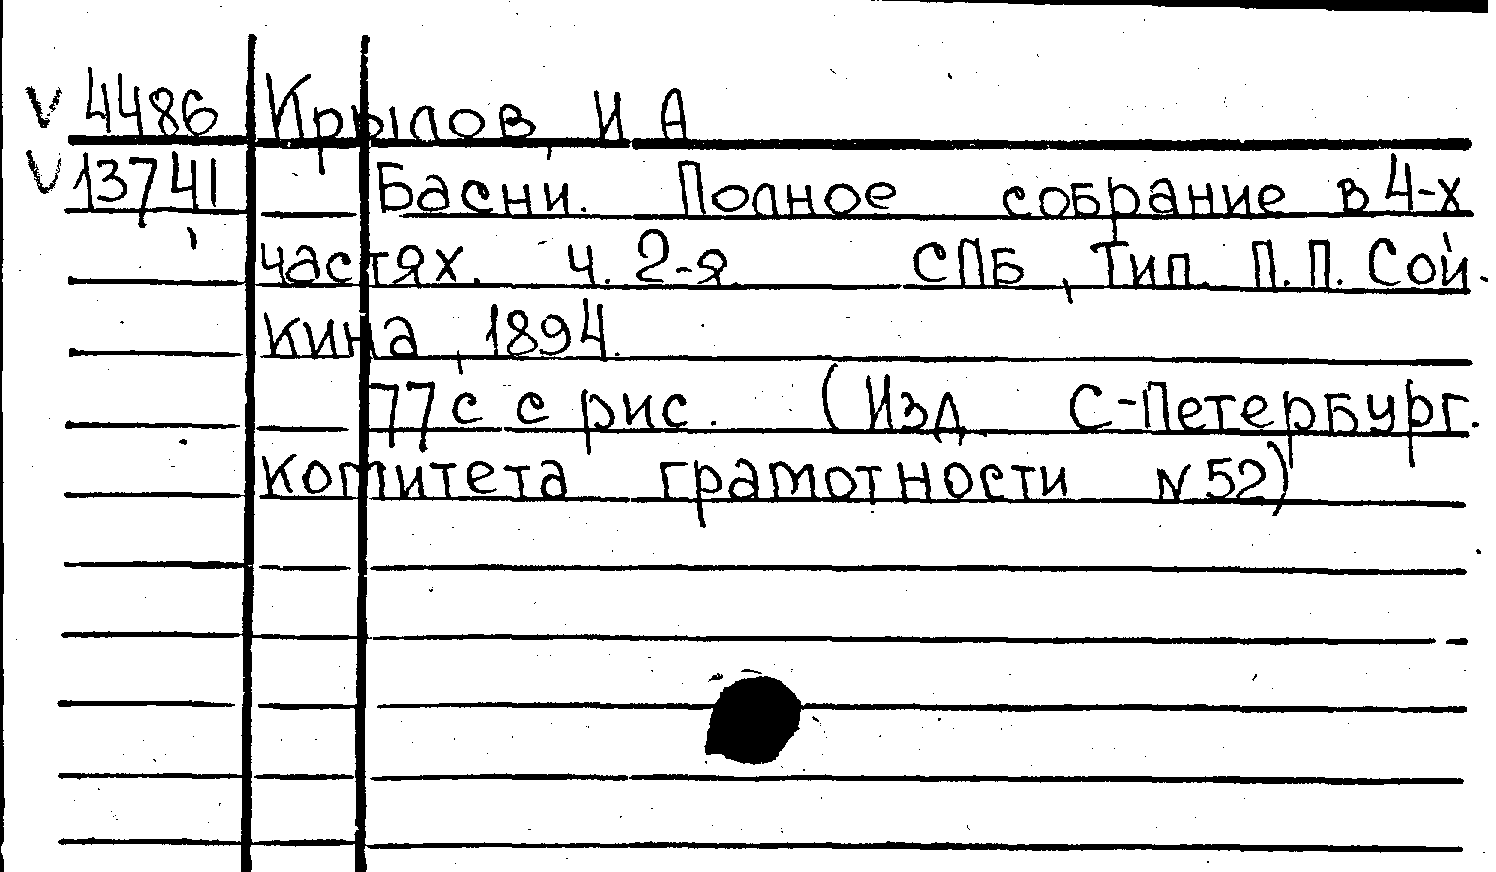 V 4486 Крылов, И А
V 13741 Басни. Полное собрание в 4-х
частях. ч. 2-я. СПБ, Тип. П.П. Сой-
кина, 1894.
77 с с рис. (Изд С-Петербург.
комитета грамотности N 52)